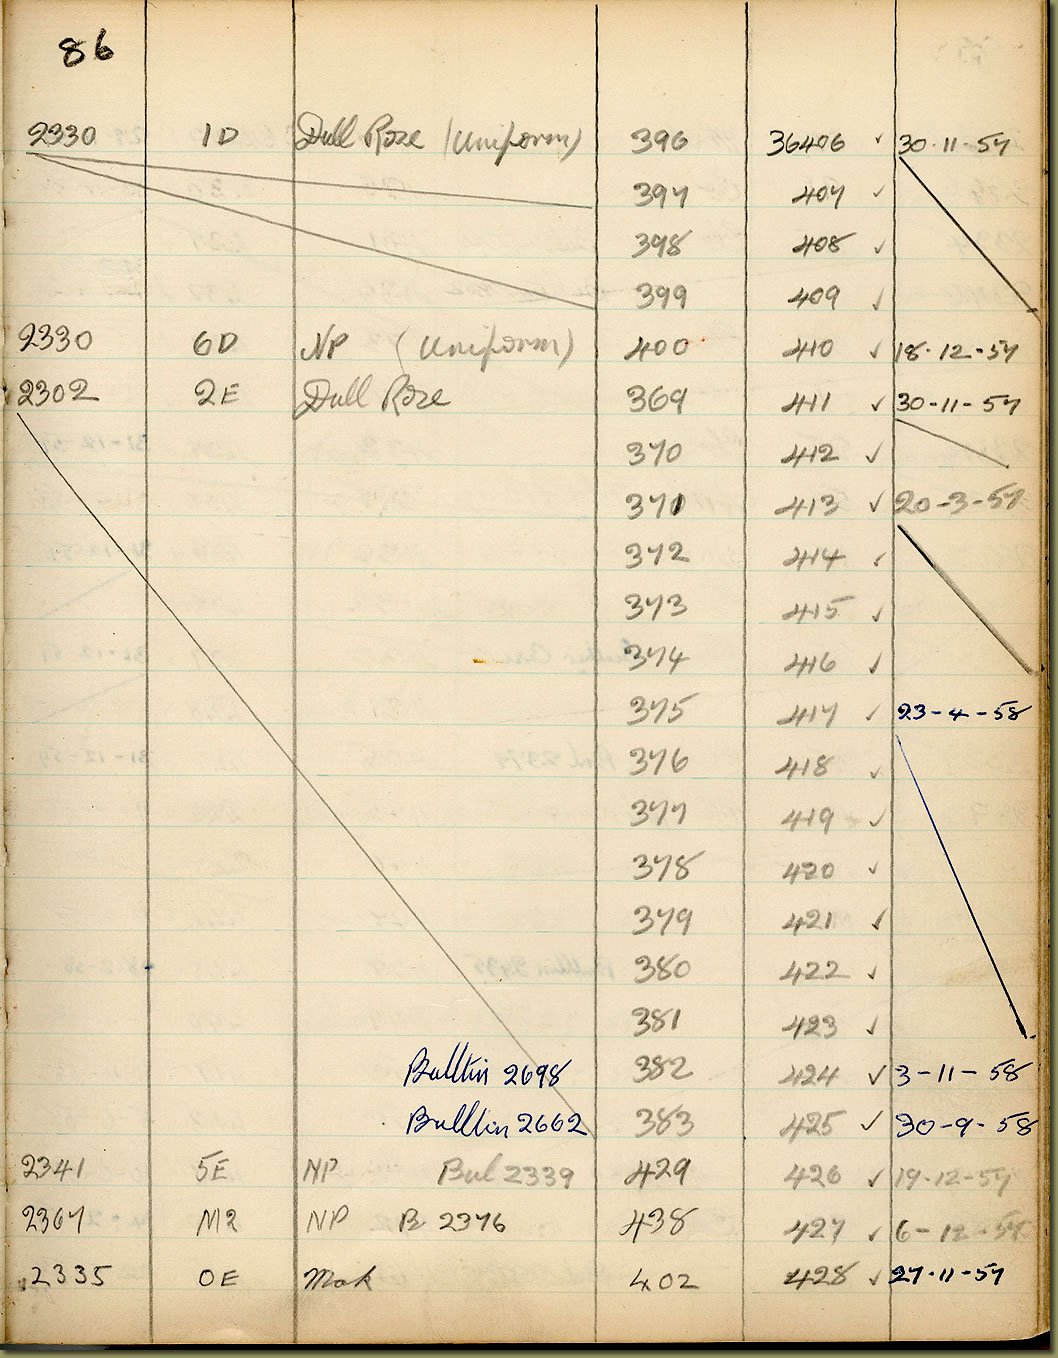 86
2330 1D Dull Rose (Uniform) 396 36406 ✓ 30-11-57
397 407 ✓
398 408 ✓
399 409 ✓
2330 6D NP (Uniform) 400 410 ✓ 18-12-57
2302 2E Dull Rose 369 411 ✓ 30-11-57
370 412 ✓
371 413 ✓ 20-3-57
372 414 ✓
373 415 ✓
374 416 ✓
375 417 ✓ 23-4-58
376 418 ✓
377 419 ✓
378 420 ✓
379 421 ✓
380 422 ✓
381 423 ✓
Bulltin 2698 382 424 ✓ 3-11-58
Bulltin 2662 383 425 ✓ 30-9-58
2341 5E NP Bul 2339 429 426 ✓ 19-12-57
2367 M2 NP B 2376 438 427 ✓ 6-12-57
2335 0E Mok 402 428 ✓ 27-11-57